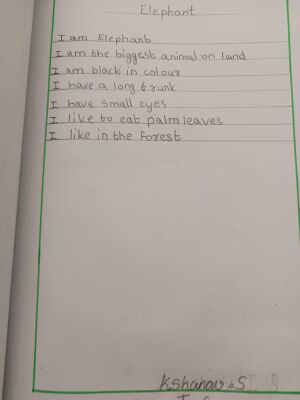 Elephant
I am Elephant
I am the biggest animal on land
I am black in colour
I have a long trunk
I have small eyes
I like to eat palm leaves
I like in the forest